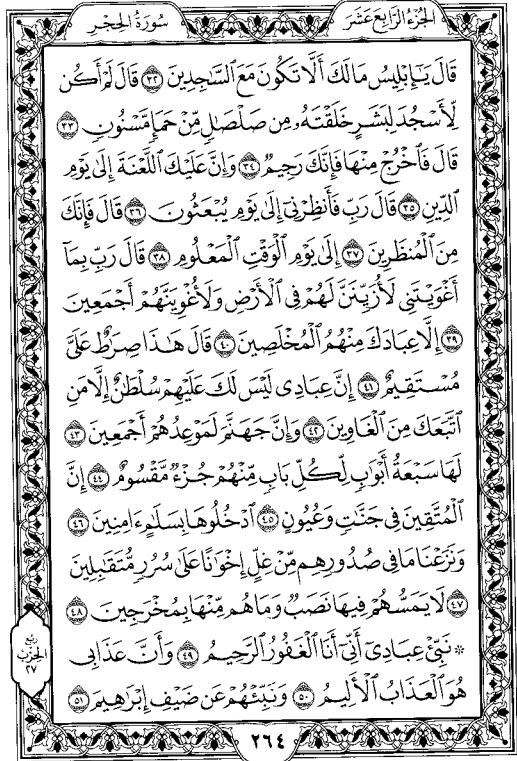 سُورَةُ الحِجْرِ
الجُزْءُ الرَّابِعَ عَشَرَ
قَالَ يَٰٓإِبْلِيسُ مَا لَكَ أَلَّا تَكُونَ مَعَ ٱلسَّٰجِدِينَ ٣٢ قَالَ لَمْ أَكُن
لِّأَسْجُدَ لِبَشَرٍ خَلَقْتَهُۥ مِن صَلْصَٰلٍ مِّنْ حَمَإٍ مَّسْنُونٍ ٣٣
قَالَ فَٱخْرُجْ مِنْهَا فَإِنَّكَ رَجِيمٌ ٣٤ وَإِنَّ عَلَيْكَ ٱللَّعْنَةَ إِلَىٰ يَوْمِ
ٱلدِّينِ ٣٥ قَالَ رَبِّ فَأَنظِرْنِىٓ إِلَىٰ يَوْمِ يُبْعَثُونَ ٣٦ قَالَ فَإِنَّكَ
مِنَ ٱلْمُنظَرِينَ ٣٧ إِلَىٰ يَوْمِ ٱلْوَقْتِ ٱلْمَعْلُومِ ٣٨ قَالَ رَبِّ بِمَآ
أَغْوَيْتَنِى لَأُزَيِّنَنَّ لَهُمْ فِى ٱلْأَرْضِ وَلَأُغْوِيَنَّهُمْ أَجْمَعِينَ
٣٩ إِلَّا عِبَادَكَ مِنْهُمُ ٱلْمُخْلَصِينَ ٤٠ قَالَ هَٰذَا صِرَٰطٌ عَلَىَّ
مُسْتَقِيمٌ ٤١ إِنَّ عِبَادِى لَيْسَ لَكَ عَلَيْهِمْ سُلْطَٰنٌ إِلَّا مَنِ
ٱتَّبَعَكَ مِنَ ٱلْغَاوِينَ ٤٢ وَإِنَّ جَهَنَّمَ لَمَوْعِدُهُمْ أَجْمَعِينَ ٤٣
لَهَا سَبْعَةُ أَبْوَٰبٍ لِّكُلِّ بَابٍ مِّنْهُمْ جُزْءٌ مَّقْسُومٌ ٤٤ إِنَّ
ٱلْمُتَّقِينَ فِى جَنَّٰتٍ وَعُيُونٍ ٤٥ ٱدْخُلُوهَا بِسَلَٰمٍ ءَامِنِينَ ٤٦
وَنَزَعْنَا مَا فِى صُدُورِهِم مِّنْ غِلٍّ إِخْوَٰنًا عَلَىٰ سُرُرٍ مُّتَقَٰبِلِينَ
٤٧ لَا يَمَسُّهُمْ فِيهَا نَصَبٌ وَمَا هُم مِّنْهَا بِمُخْرَجِينَ ٤٨
۞ نَبِّئْ عِبَادِىٓ أَنِّىٓ أَنَا ٱلْغَفُورُ ٱلرَّحِيمُ ٤٩ وَأَنَّ عَذَابِى
هُوَ ٱلْعَذَابُ ٱلْأَلِيمُ ٥٠ وَنَبِّئْهُمْ عَن ضَيْفِ إِبْرَٰهِيمَ ٥١
رُبْعُ
الحِزْبِ
٢٧
٢٦٤